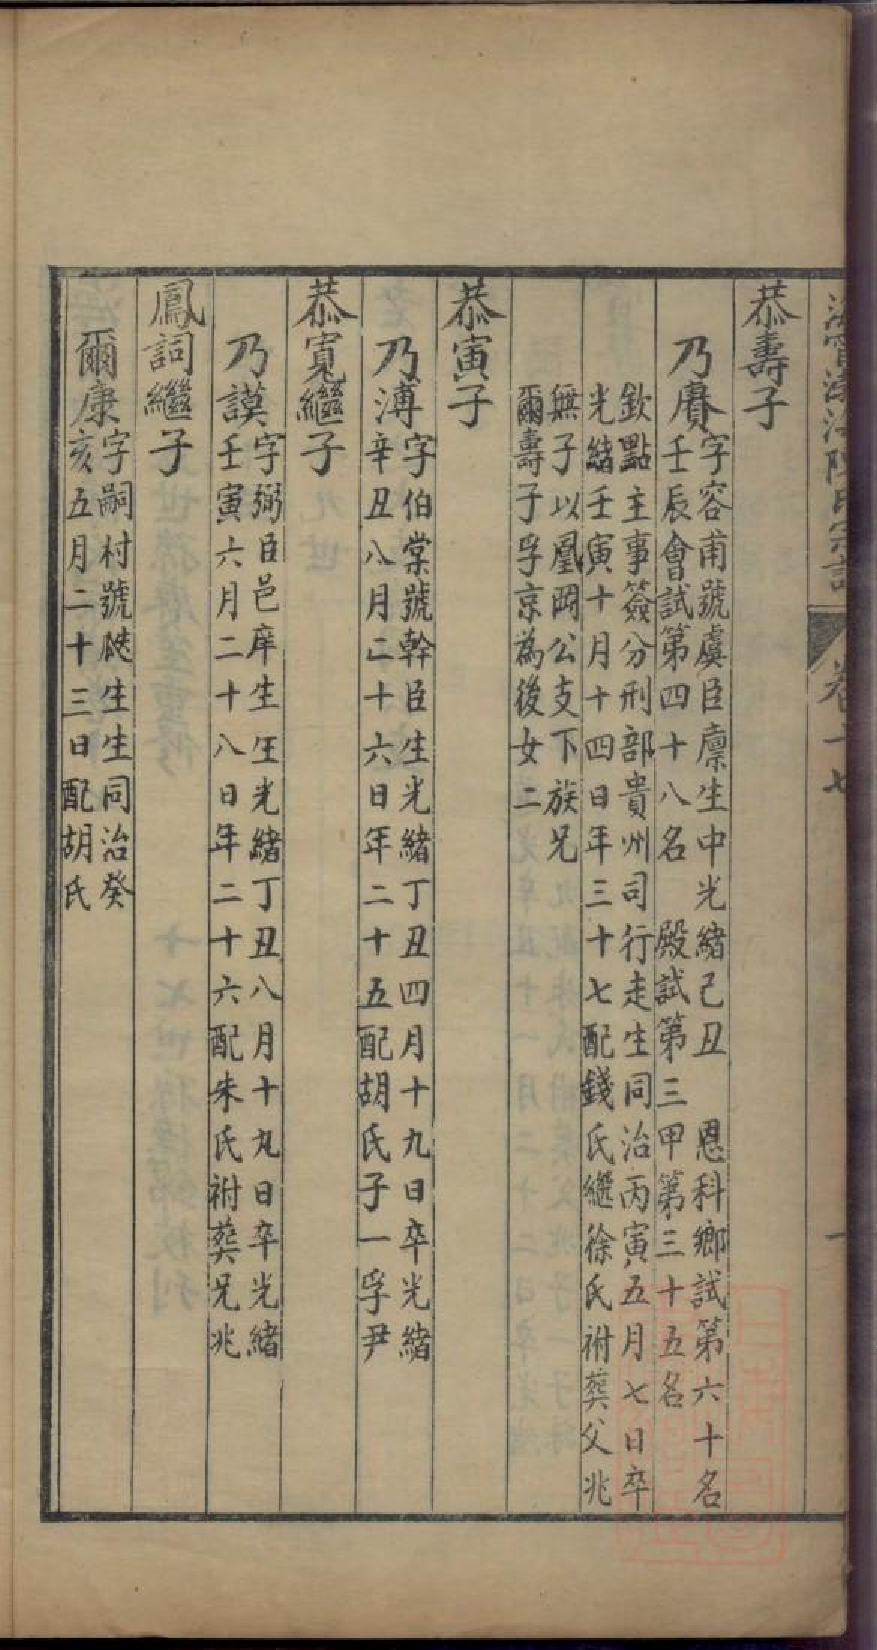 恭壽子
乃賡
字容甫號虞臣廪生中光緒己丑 恩科鄉試第六十名
壬辰會試第四十八名 殿試第三甲第三十五名
欽點主事簽分刑部貴州司行走生同治丙寅五月七日卒
光緒壬寅十月十四日年三十七配錢氏繼徐氏祔葬父兆
無子以鳳岡公支下族兄
爾壽子孚京為後女二
恭寅子
乃漙
字伯棠號幹臣生光緒丁丑四月十九日卒光緒
辛丑八月二十六日年二十五配胡氏子一孚尹
恭寬繼子
乃謨
字弼臣邑庠生生光緒丁丑八月十九日卒光緒
壬寅六月二十八日年二十六配朱氏祔葬兄兆
鳳詞繼子
爾康
字嗣村號 生生同治癸
亥五月二十三日配胡氏
卷二十七
一